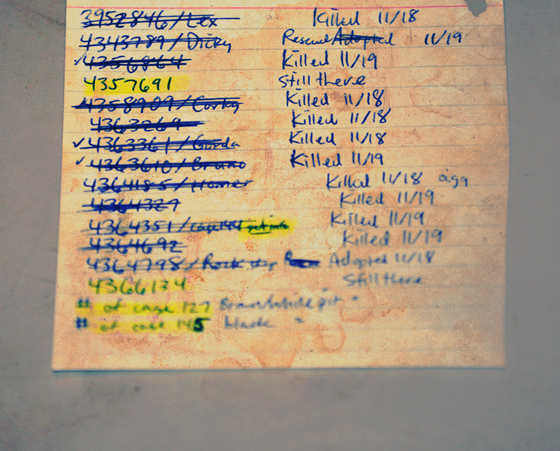 3952846/Lex Killed 11/18
4343789/Dicky Rescued Adopted 11/19
✓4356864 Killed 11/19
4357691 Still there
4358909/Corky Killed 11/18
4363269 Killed 11/18
✓4363361/Gorda Killed 11/18
✓4363610/Bruno Killed 11/19
4364185/Homer Killed 11/18 agg
4364329 Killed 11/19
4364351/cage 144 Killed 11/19
4364692 Killed 11/19
4364798/Rock Adopted 11/18
4366134 Still there
# of cage 127 Brown white pit "
# of cage 145 black "